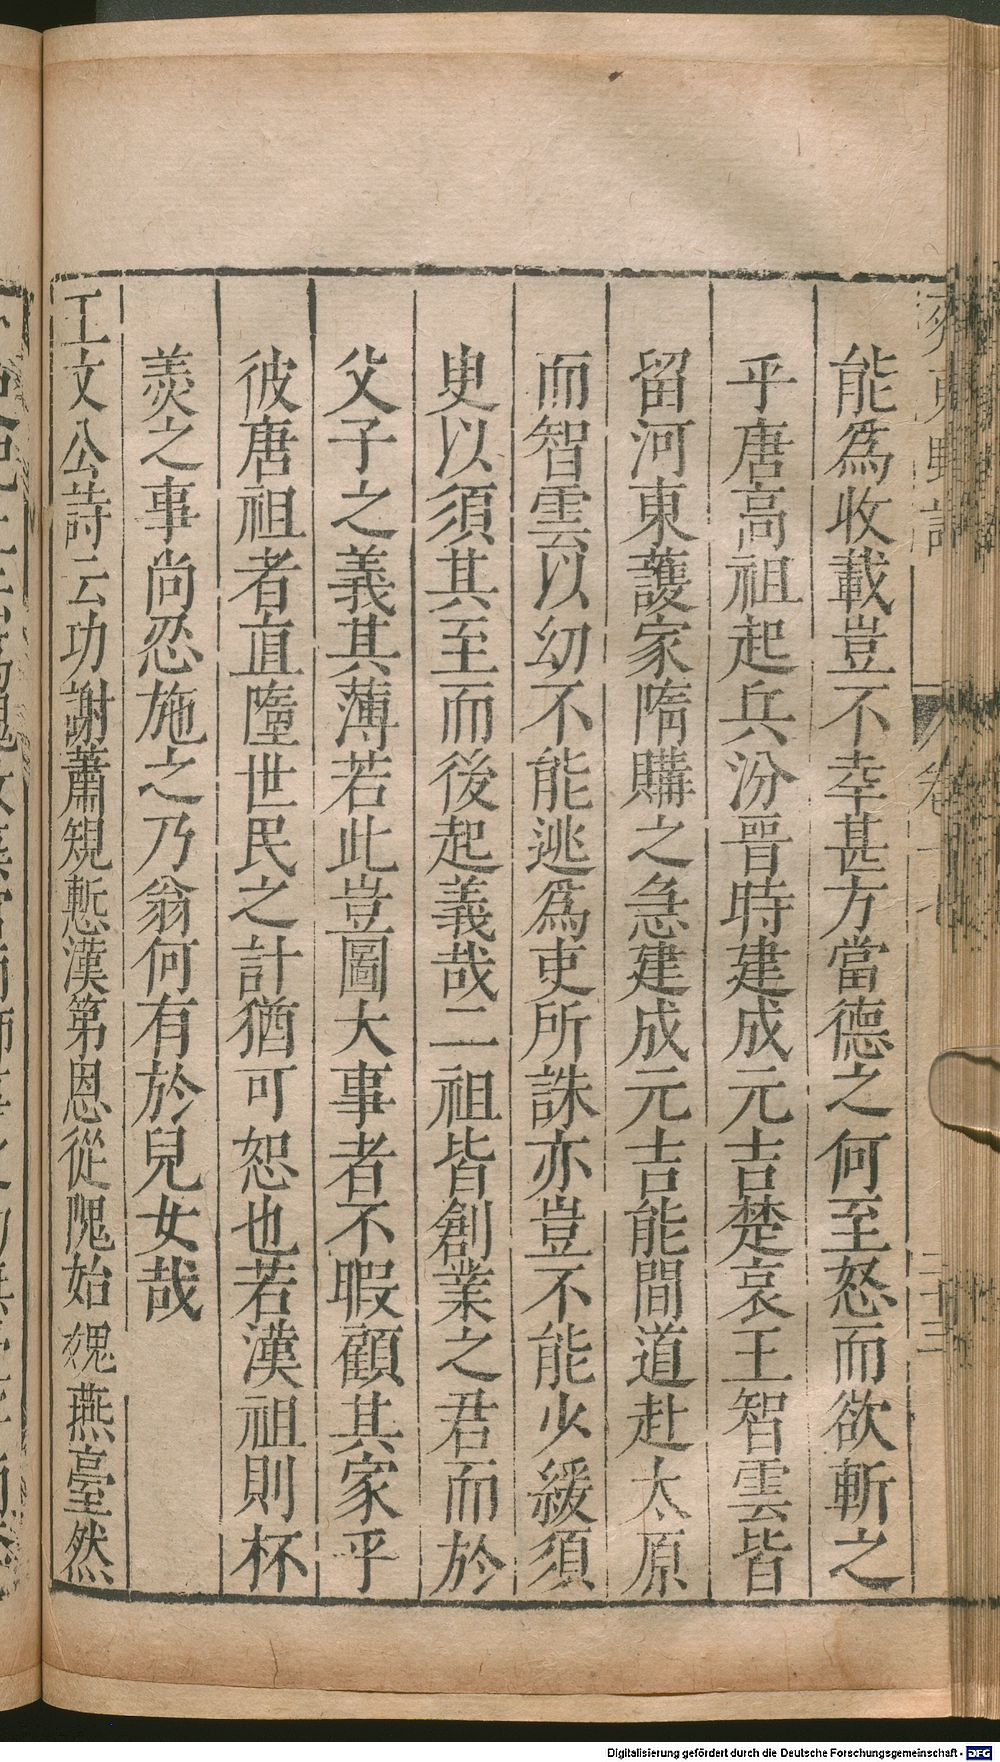 能爲收載豈不幸甚方當德之何至怒而欲斬之
乎唐高祖起兵汾晉時建成元吉楚哀王智雲皆
留河東護家隋購之急建成元吉能間道赴太原
而智雲以幼不能逃爲吏所誅亦豈不能少緩須
臾以須其至而後起義哉二祖皆創業之君而於
父子之義其薄若此豈圖大事者不暇顧其家乎
彼唐祖者直墮世民之計猶可恕也若漢祖則杯
羮之事尚忍施之乃翁何有於兒女哉
王文公詩云功謝蕭規慙漢第恩從隗始媿燕臺然
齊東野語
卷十七
二十三
Digitalisierung gefördert durch die Deutsche Forschungsgemeinschaft - DFG